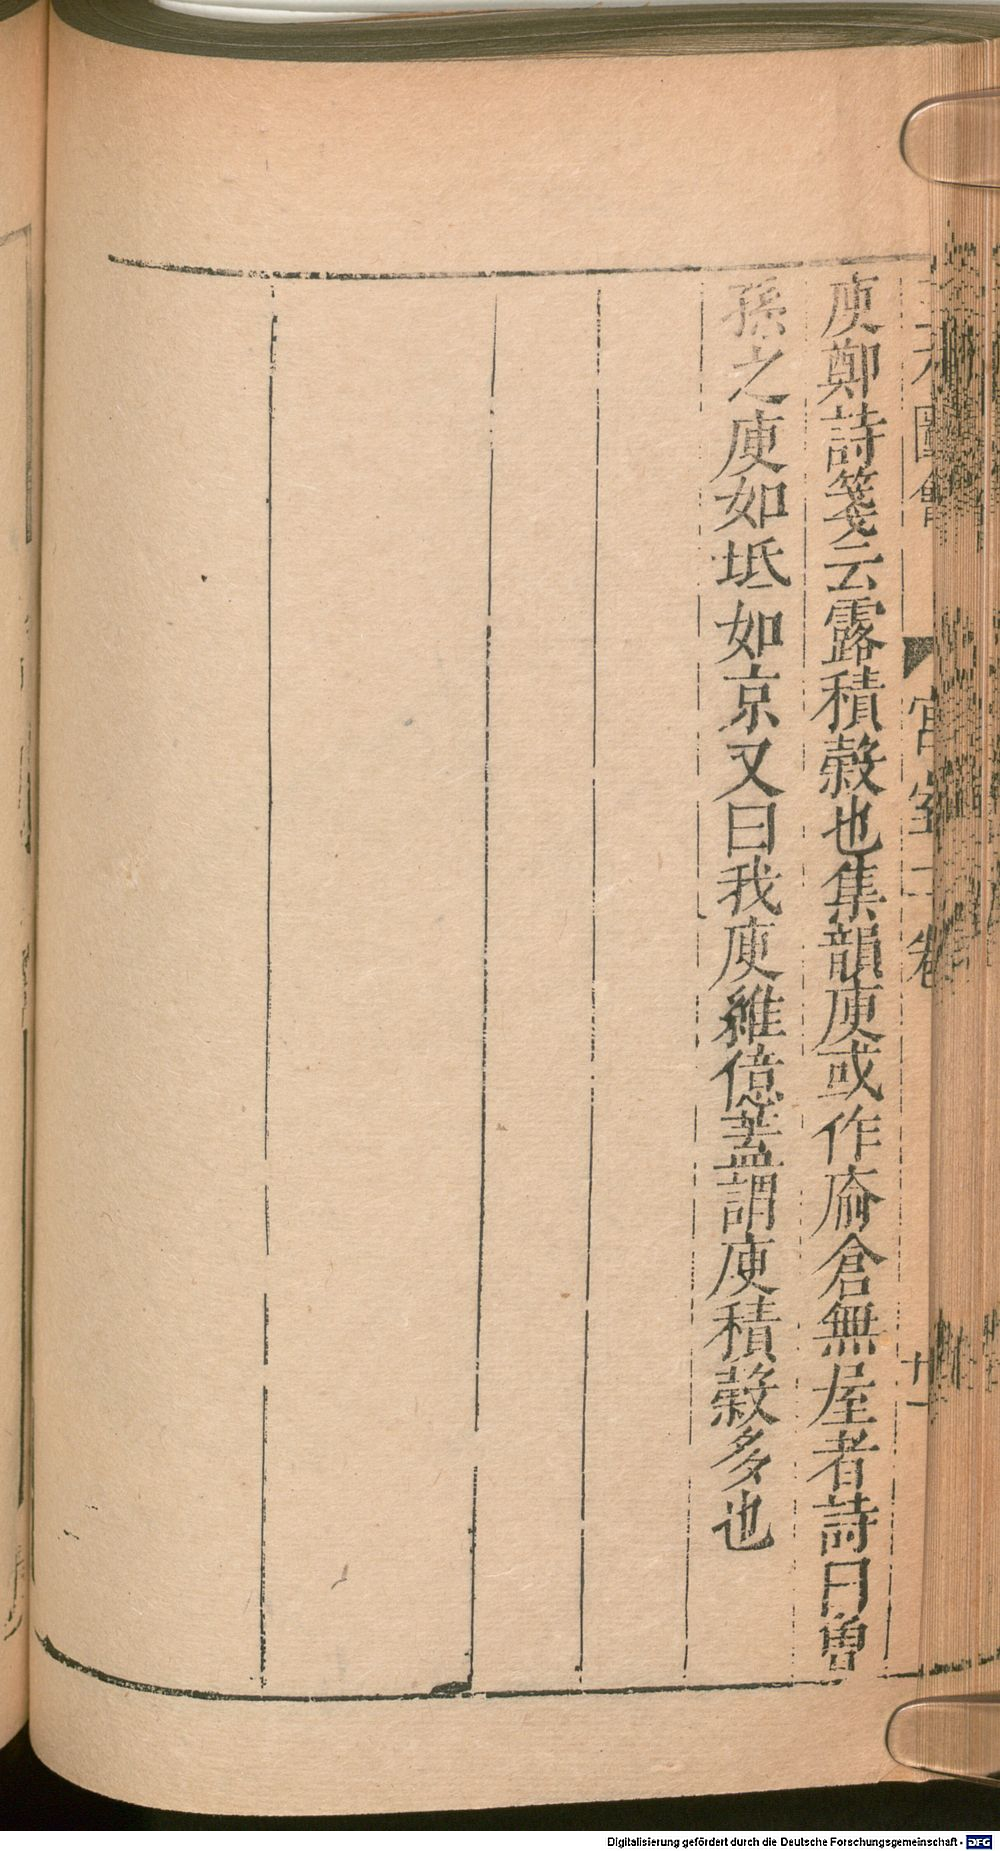 三才圖會 宮室二卷 廿一
庾鄭詩箋云露積穀也集韻庾或作㢏倉無屋者詩曰曾
孫之庾如坻如京又曰我庾維億蓋謂庾積穀多也
Digitalisierung gefördert durch die Deutsche Forschungsgemeinschaft - DFG